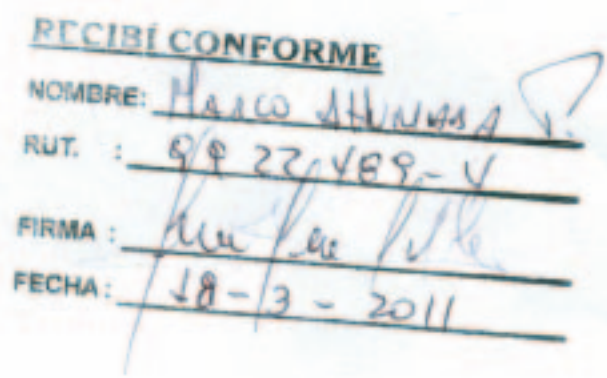 RECIBÍ CONFORME
NOMBRE: MARCO AHUMADA P.
RUT. : 9922.489-4
FIRMA :
FECHA: 18-3-2011